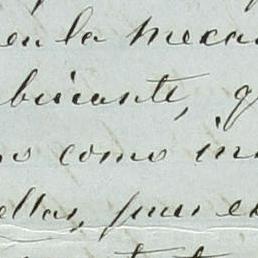 en la meca
bricante, q
no como in
ellas, pues es